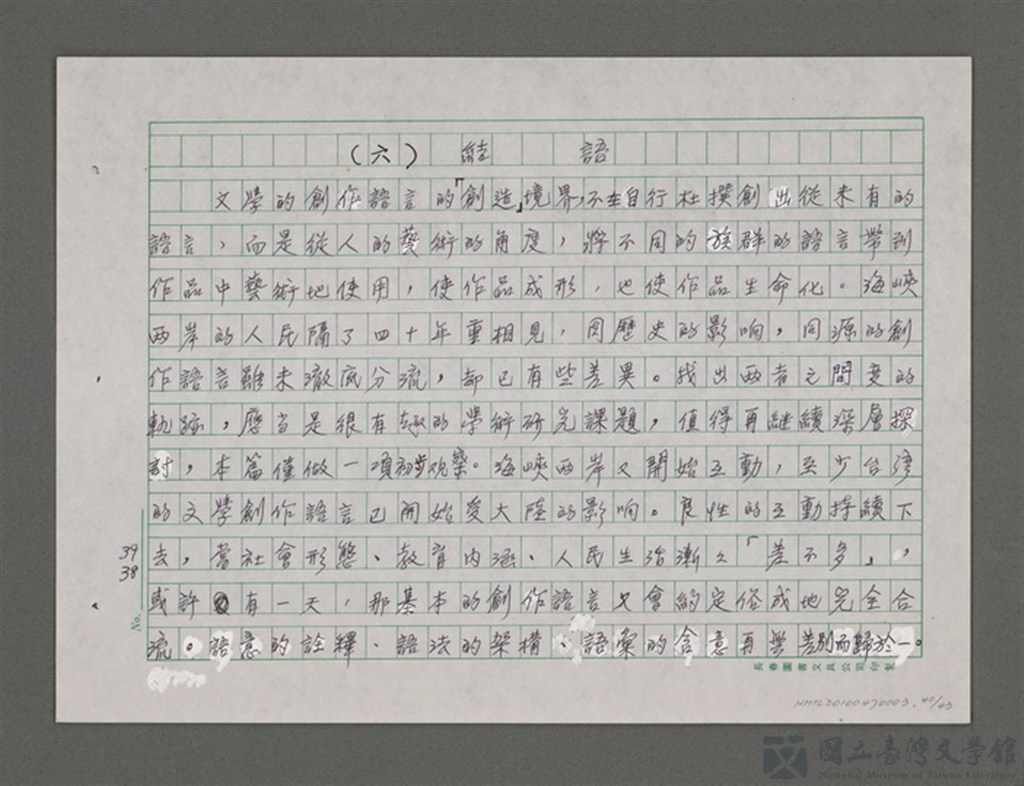 （六） 結 語
文學的創作語言的「創造」境界，不在自行杜撰創出從未有的
語言，而是從人的藝術的角度，將不同的族群的語言帶到
作品中藝術地使用，使作品成形，也使作品生命化。海峽
兩岸的人民隔了四十年重相見，因歷史的影响，同源的創
作語言雖未澈底分流，都已有些差異。找出兩者之間變的
軌跡，應当是很有趣的學術研究課題，值得再継續深層探
討，本篇僅做一項初步观察。海峽兩岸又開始互動，至少台湾
的文學創作語言已開始受大陸的影响。良性的互動持續下
去，當社會形態、教育内涵、人民生活漸漸「差不多」，
或許有一天，那基本的創作語言又會約定俗成地完全合
流。語意的詮釋、語法的架構、語彙的含意再無差別而歸於一。
39
38
No.
長春圖書文具公司印製
NMTL20100470003.40/43
國立臺灣文學館
National Museum of Taiwan Literature